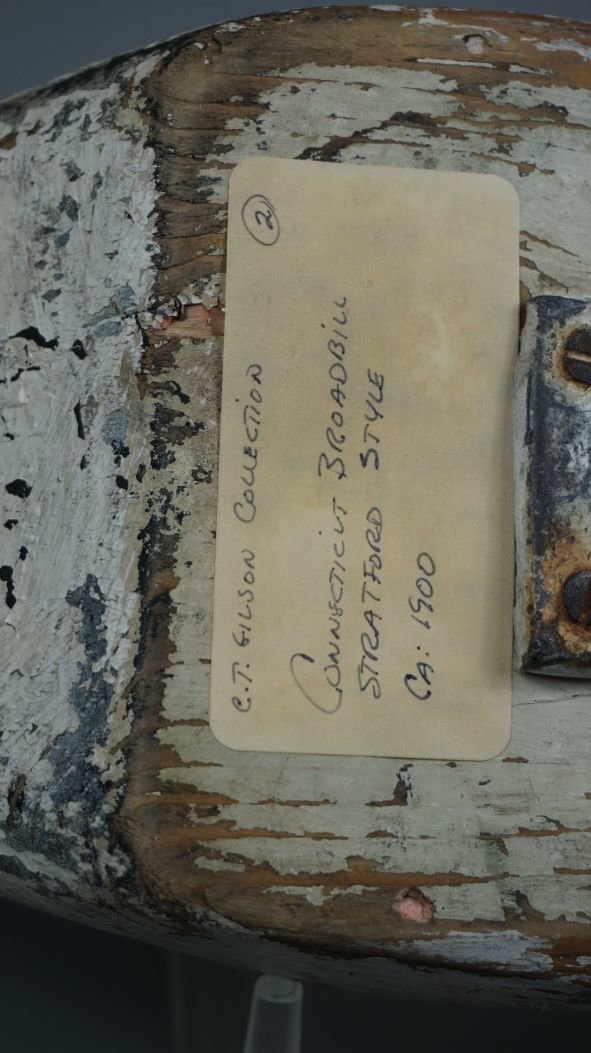 C.T. GILSON COLLECTION
2
CONNECTICUT BROADBILL
STRATFORD STYLE
CA: 1900